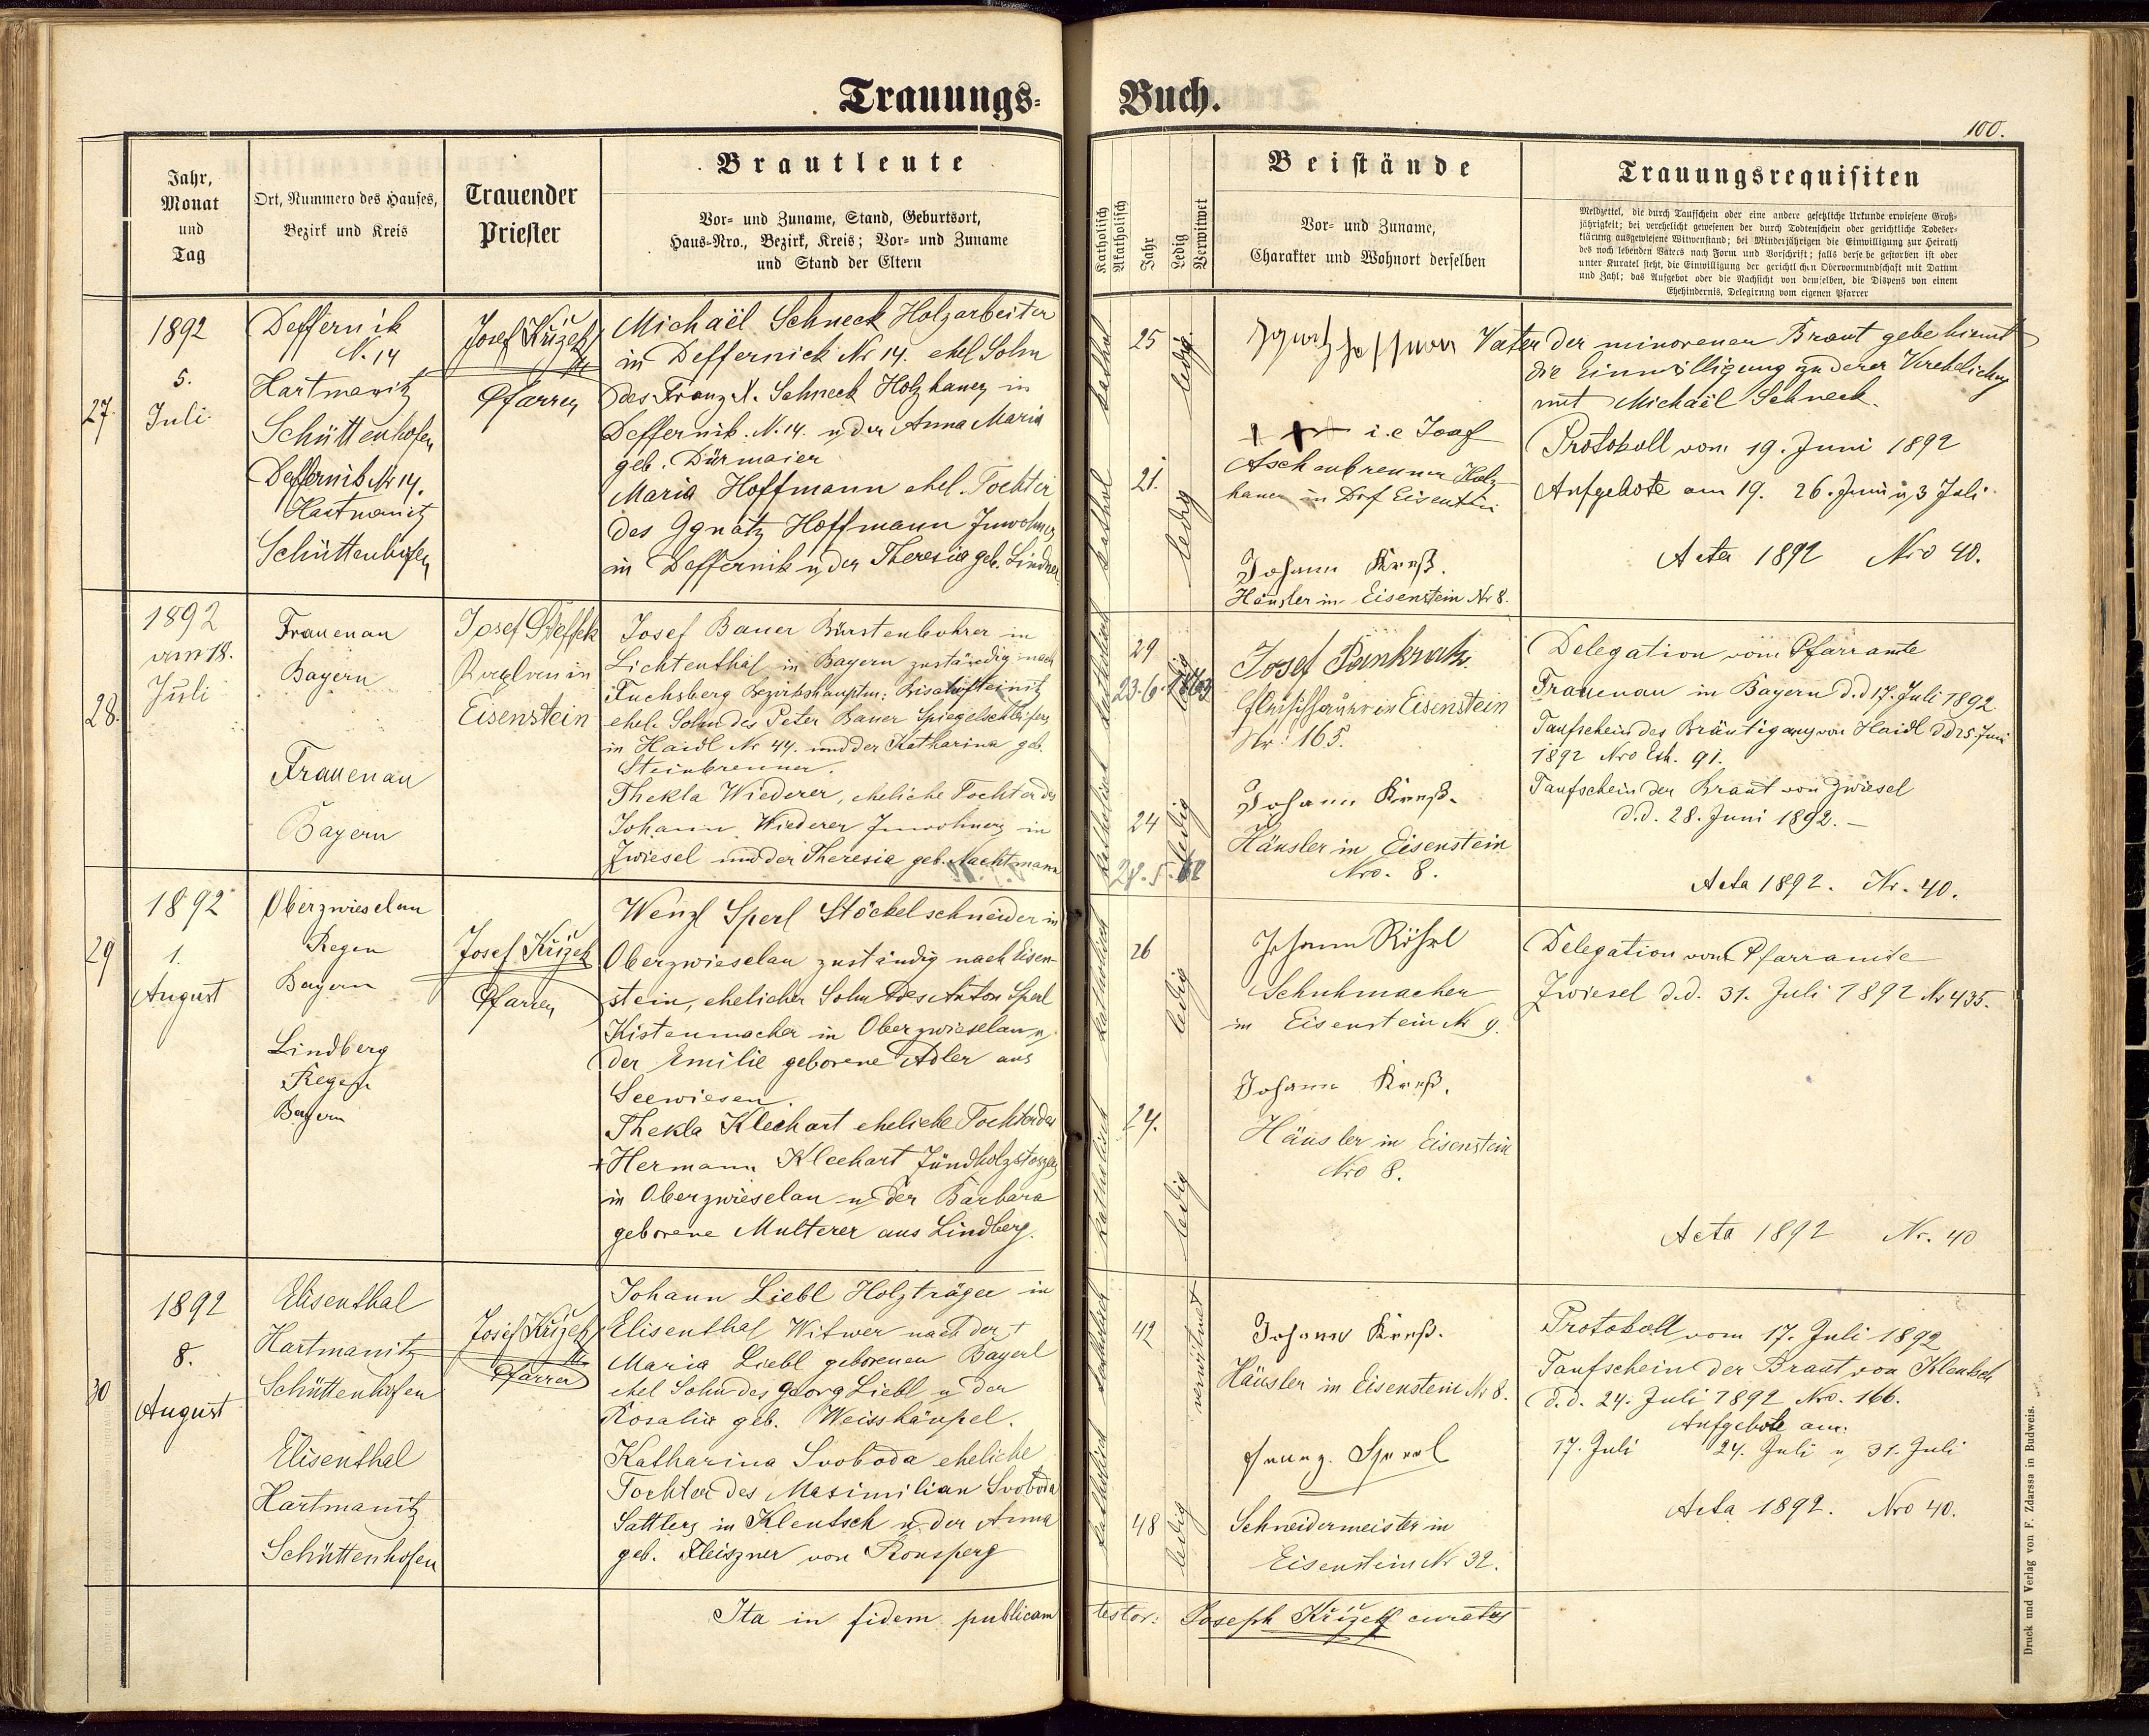 Trauungs-
Buch.
100.
Jahr,
Monat
und
Tag
Ort, Nummero des Hauses,
Bezirk und Kreis
Trauender
Priester
Brautleute
Vor- und Zuname, Stand, Geburtsort,
Haus-Nro., Bezirk, Kreis; Vor- und Zuname
und Stand der Eltern
Katholisch
Akatholisch
Jahr
Ledig
Verwitwet
Beistände
Vor- und Zuname,
Charakter und Wohnort derselben
Trauungsrequisiten
Meldzettel, die durch Taufschein oder eine andere gesetzliche Urkunde erwiesene Groß-
jährigkeit; bei verehelicht gewesenen der durch Todtenschein oder gerichtliche Todeser-
klärung ausgewiesene Witwenstand; bei Minderjährigen die Einwilligung zur Heirath
des noch lebenden Vaters nach Form und Vorschrift; falls derselbe gestorben ist oder
unter Kuratel steht, die Einwilligung der gerichtlichen Obervormundschaft mit Datum
und Zahl; das Aufgebot oder die Nachsicht von demselben, die Dispens von einem
Ehehindernis, Delegirung vom eigenen Pfarrer
27.
1892
5.
Juli
Deffernik
N. 14
Hartmanitz
Schüttenhofen
Deffernik Nr 14.
Hartmanitz
Schüttenhofen
Josef Křižek
Pfarrer
Michaël Schneck Holzarbeiter
in Deffernick Nr 14. ehel Sohn
des Franz X. Schneck Holzhauer in
Deffernik. N. 14. u der Anna Maria
geb. Dürmaier
Maria Hoffmann ehel. Tochter
des Ignatz Hoffmann Inwohner
in Deffernik u der Theresia geb. Lindner
kathol
25
ledig
kathol
21.
ledig
Ignatz Hoffmann Vater der minorenen Braut gebe hiemit
die Einwilligung zu derer Verehelichung
mit Michaël Schneck.
i.e Josef
Aschenbrenner Holz-
hauer in Dorf Eisenstein
Johann Kreß.
Häusler in Eisenstein Nr 8.
Protokoll vom 19. Juni 1892
Aufgebote am 19. 26. Juni u 3 Juli
Acta 1892 Nro 40.
28.
1892
am 18.
Juli
Frauenau
Bayern
Frauenau
Bayern
Josef Steffek
in
Eisenstein
Josef Bauer Bürstenbohrer in
Lichtenthal in Bayern zuständig nach
Fuchsberg Bezirkshauptm: Bischofteinitz
ehel. Sohn des Peter Bauer Spiegelschleifers
in Haidl Nr 44. und der Katharina geb.
Steinbrenner.
Thekla Wiederer, eheliche Tochter des
Johann Wiederer Inwohners in
Zwiesel und der Theresia geb. Nachtmann
katholisch
29
23.6.1863
ledig
katholisch
24
28.5.68
ledig
Josef Pankratz.
Fleischhauer in Eisenstein
Nr. 165.
Johann Kreß.
Häusler in Eisenstein
Nro. 8.
Delegation vom Pfarramte
Frauenau in Bayern d.d 17. Juli 1892.
Taufschein des Bräutigams von Haidl d.d 25. Juni
1892 Nro Exh. 91.
Taufschein der Braut von Zwiesel
d.d. 28. Juni 1892.
Acta 1892. Nr. 40.
29
1892
1.
August
Oberzwieselau
Regen
Bayern
Lindberg
Regen
Bayern
Josef Křižek
Pfarrer
Wenzl Sperl Stöckelschneider in
Oberzwieselau zuständig nach Eisen-
stein, ehelicher Sohn des Anton Sperl
Kistenmacher in Oberzwieselau u
der Emilie geborene Adler aus
Seewiesen.
Thekla Kleehart eheliche Tochter des
+ Hermann Kleehart
in Oberzwieselau u der Barbara
geborene Multerer aus Lindberg.
katholisch
26
ledig
katholisch
24.
ledig
Johann Röhrl
Schuhmacher
in Eisenstein Nr 9.
Johann Kreß.
Häusler in Eisenstein
Nro 8.
Delegation vom Pfarramte
Zwiesel d.d. 31. Juli 1892 Nr 435.
Acta 1892 Nr. 40
30
1892
8.
August
Elisenthal
Hartmanitz
Schüttenhofen
Elisenthal
Hartmanitz
Schüttenhofen
Josef Křižek
Pfarrer
Johann Liebl Holzträger in
Elisenthal Witwer nach der +
Maria Liebl geborenen Bayerl
ehel Sohn des Georg Liebl u der
Rosalia geb. Weisshäupel.
Katharina Svoboda eheliche
Tochter des Maximilian Svoboda
Sattlers in Klentsch u. der Anna
geb. Fleiszner von Ronsperg
katholisch
42
verwitwet
katholisch
48
ledig
Johann Kreß.
Häusler in Eisenstein Nr 8.
Franz Sperl
Schneidermeister in
Eisenstein Nr 32.
Protokoll vom 17. Juli 1892
Taufschein der Braut von Klentsch
d.d. 24. Juli 1892 Nro. 166.
Aufgebote am:
17. Juli 24. Juli u 31. Juli
Acta 1892. Nro 40.
Ita in fidem publicam testor: Joseph Křižek curatus
Druck und Verlag von F. Zdarssa in Budweis.